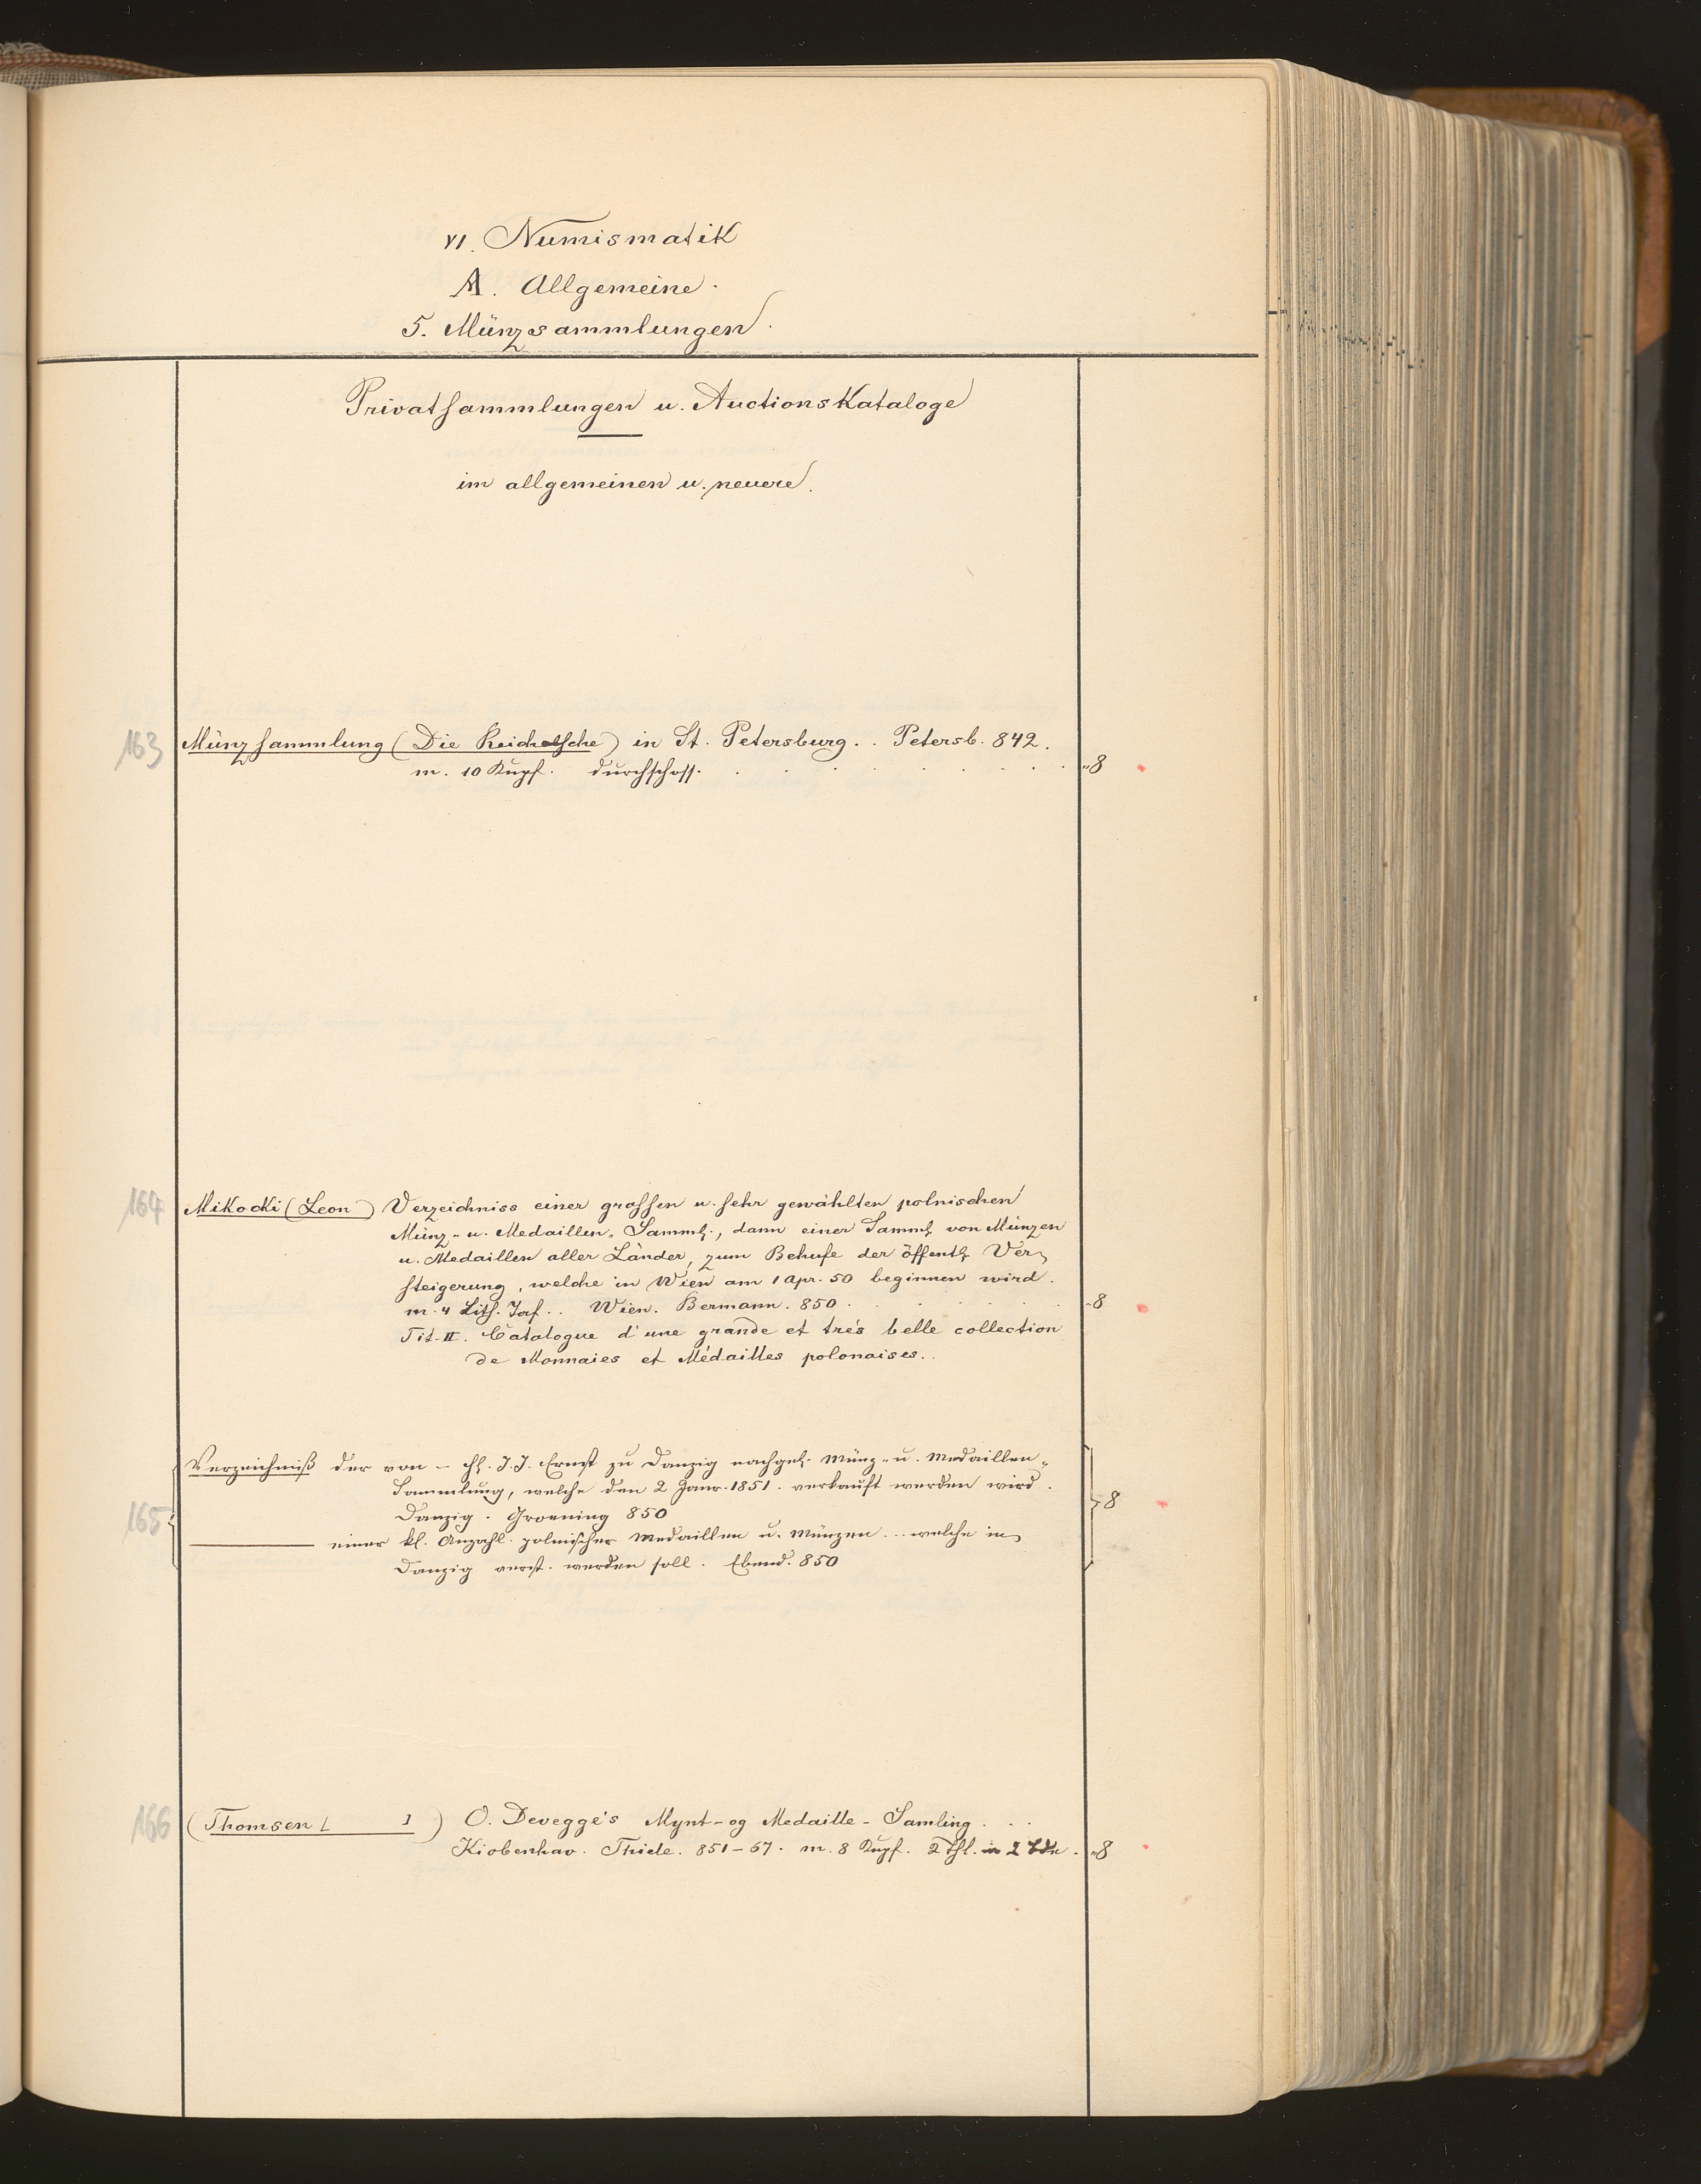 VI. Numismatik
A. Allgemeine.
5. Münzsammlungen.
Privatsammlungen u. Auctionskataloge
im allgemeinen u. neuere.
163 Münzsammlung (Die Reichelsche) in St. Petersburg. . Petersb. 842.
m. 10 Kupf. durchschoss. . . . . . . . . "8
164 Mikocki (Leon) Verzeichniss einer grossen u. sehr gewählten polnischen
Münz- u. Medaillen-Samml., dann einer Samml. von Münzen
u. Medaillen aller Länder, zum Behufe der öffentl. Ver-
steigerung, welche in Wien am 1 Apr. 50 beginnen wird.
m. 4 Lith. Taf. . Wien. Bermann. 850. . . . . . "8
Tit. II. Catalogue d'une grande et trés belle collection
de Monnaies et Médailles polonaises. .
Verzeichniß der von – J. J. Ernst zu Danzig nachgel. Münz- u. Medaillen-
Sammlung, welche den 2 Janr. 1851. verkauft werden wird.
165 Danzig. Groening 850 8
——— einer kl. Anzahl polnischer Medaillen u. Münzen . . . welche in
Danzig verst. werden soll. Ebend. 850
166 (Thomsen [ ] ) O. Devegge's Mynt- og Medaille-Samling. . .
Kiobenhav. Thiele. 851–67. m. 8 Kupf. 2 Thl. in 2 Bdn. "8